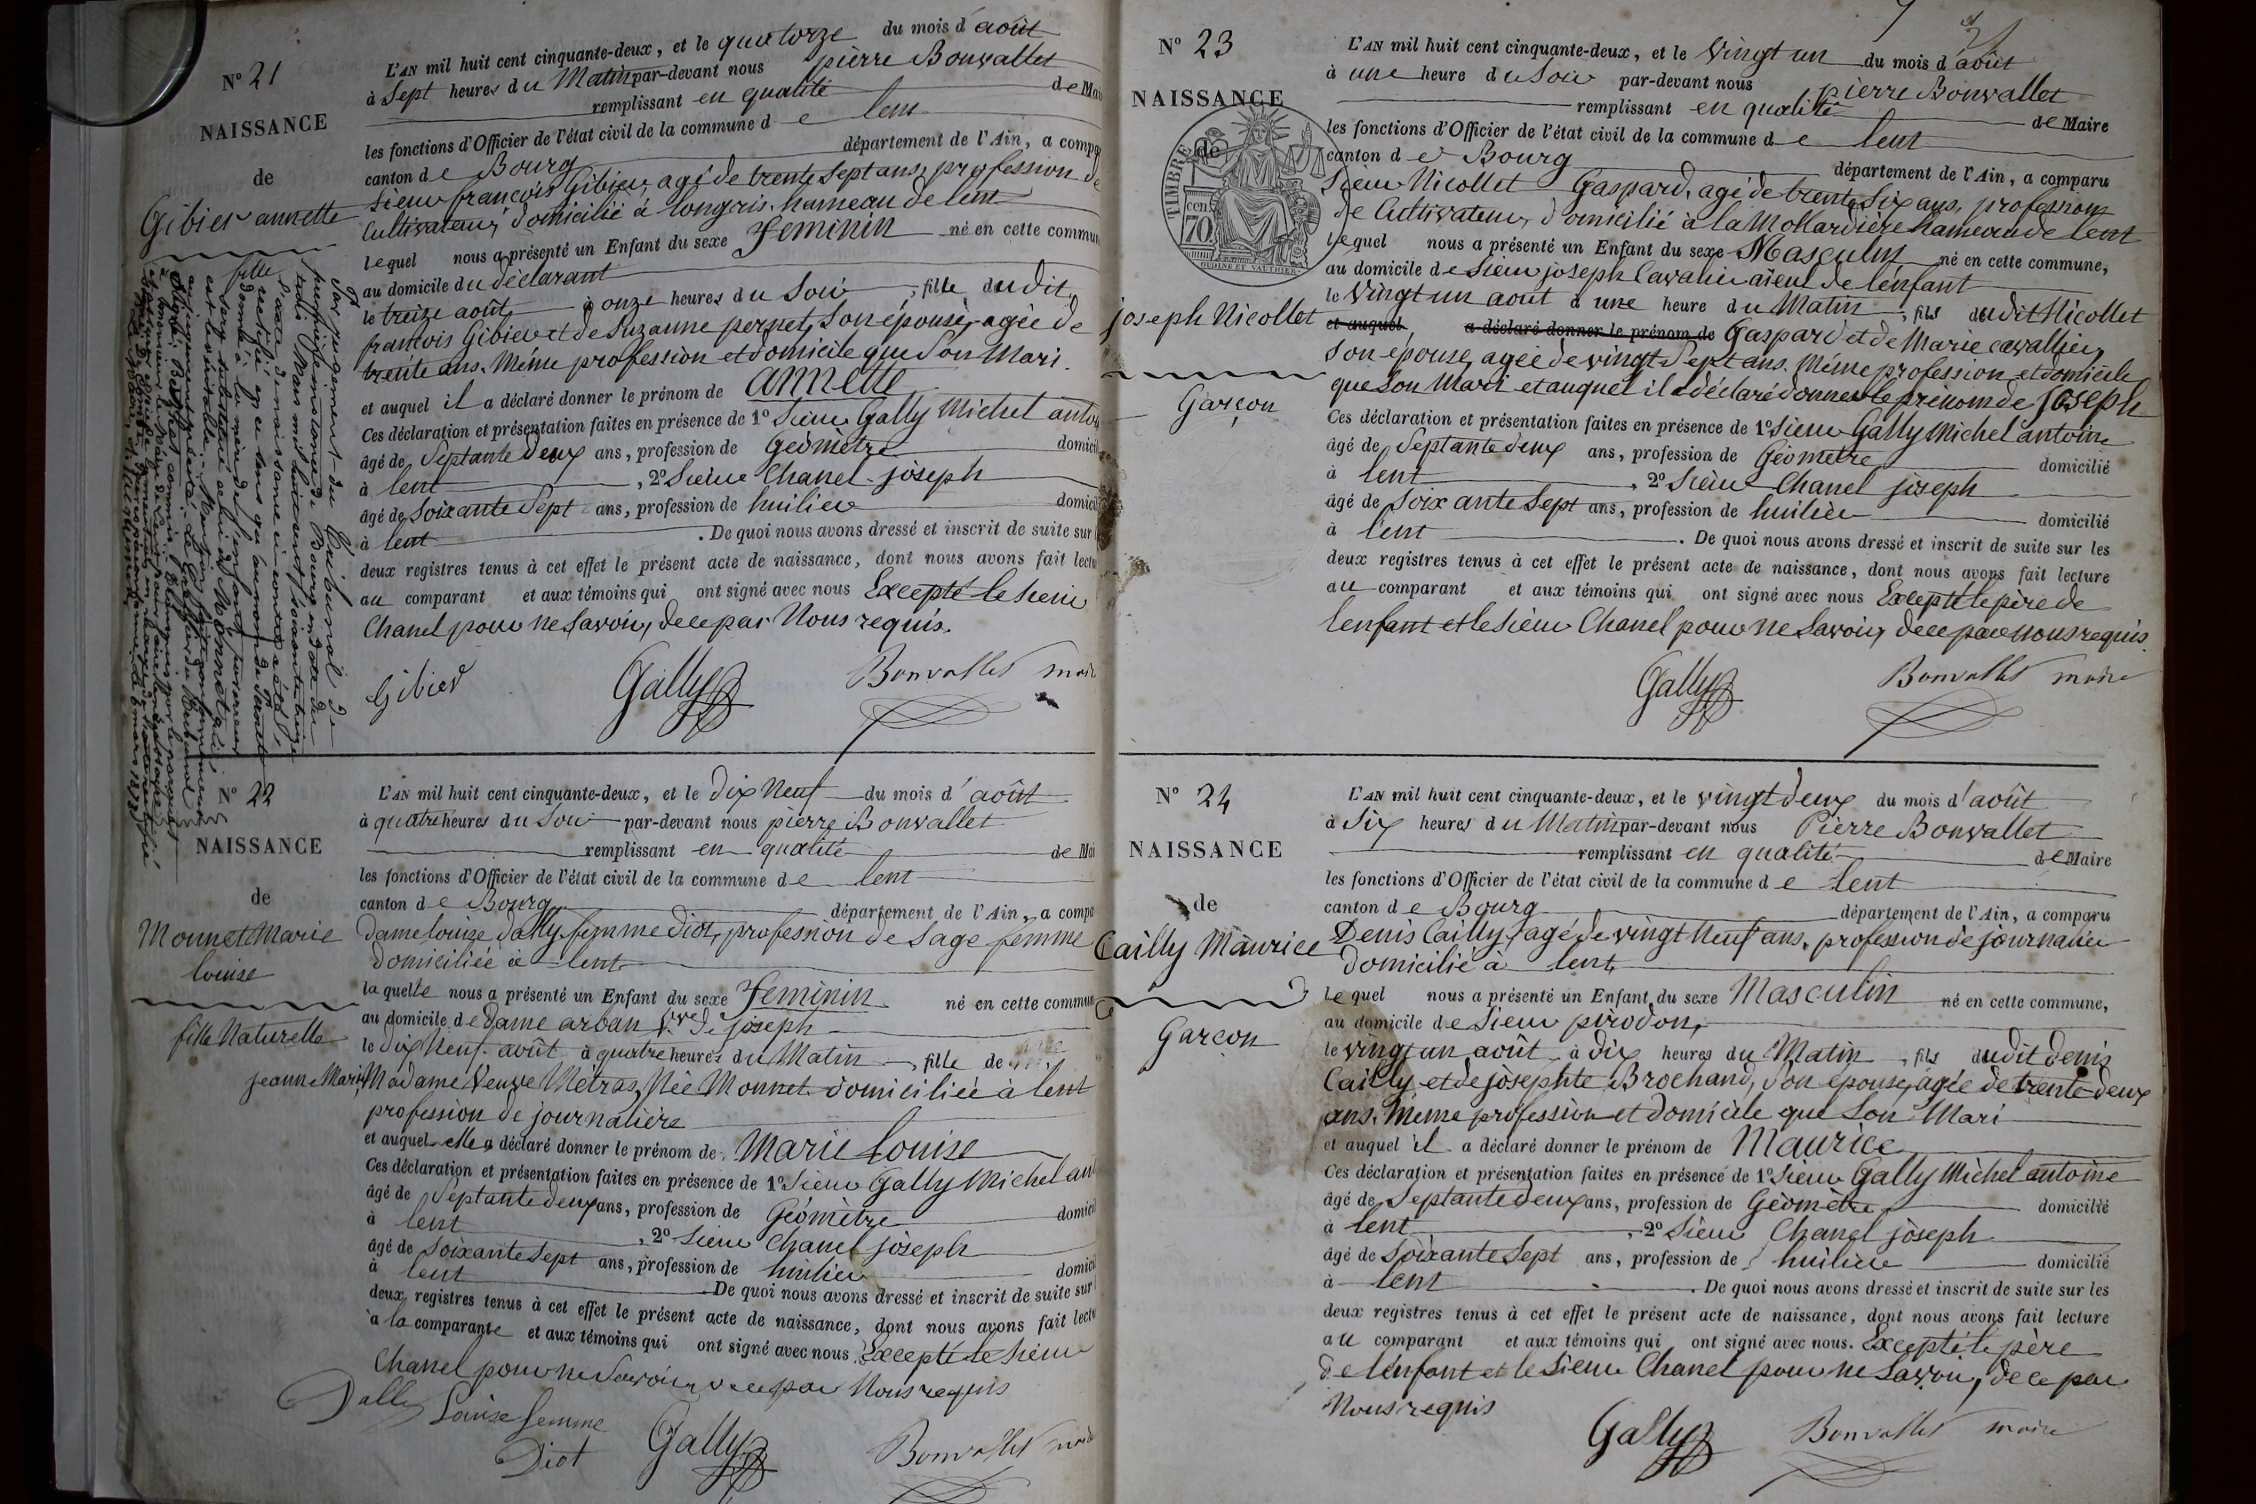 N° 21
NAISSANCE
de
Gibier annette
fille
L'AN mil huit cent cinquante-deux, et le quatorze du mois d'août
à Sept heures du Matin par-devant nous pierre Bonvallet
remplissant en qualité de Mai
les fonctions d'Officier de l'état civil de la commune de lent
canton de Bourg département de l'Ain, a compa
Sieur françois Gibier, agé de trente sept ans, profession de
Cultivateur, domicilié à longris. hameau de lent
lequel nous a présenté un Enfant du sexe feminin né en cette commun
au domicile du déclarant
le treize août, à onze heures du Soir, fille dudit
francois Gibier et de Suzanne pernet, Son épouse, agée de
trente ans. Même profession et domicile que Son Mari.
et auquel il a déclaré donner le prénom de annette
Ces déclaration et présentation faites en présence de 1° Sieur Gally Michel antoi
âgé de Septante deux ans, profession de Géomètre domicil
à lent, 2° Sieur Chanel joseph
âgé de Soixante Sept ans, profession de huilier domicil
à lent. De quoi nous avons dressé et inscrit de suite sur l
deux registres tenus à cet effet le présent acte de naissance, dont nous avons fait lectu
au comparant et aux témoins qui ont signé avec nous Excepté le Sieur
Chanel pour ne Savoir, de ce par Nous requis.
Gibier Gally Bonvallet maire
Par jugement du tribunal de
première instance de Bourg en date du
trois Mars mil huit cent soixante treize
l'acte de naissance ci contre a été
rectifié en ce sens que le nom de Pernet
donné à la mère de l'enfant
sera substitué celui de Monnet
N° 22
NAISSANCE
de
Monnet Marie
louise
fille Naturelle
L'AN mil huit cent cinquante-deux, et le dix Neuf du mois d'août
à quatre heures du Soir par-devant nous pierre Bonvallet
remplissant en qualité de Mai
les fonctions d'Officier de l'état civil de la commune de lent
canton de Bourg département de l'Ain, a compa
dame louise dally femme diot, profession de Sage femme
domiciliée à lent
laquelle nous a présenté un Enfant du sexe feminin né en cette commun
au domicile de dame arban Vve de joseph
le dix Neuf août à quatre heures du Matin, fille de
jeanne Marie Madame Veuve Metras, Née Monnet domiciliée à lent
profession de journalière
et auquel elle a déclaré donner le prénom de Marie louise
Ces déclaration et présentation faites en présence de 1° Sieur Gally Michel ant
âgé de Septante deux ans, profession de Géomètre domicil
à lent, 2° Sieur Chanel joseph
âgé de Soixante Sept ans, profession de huilier domicil
à lent. De quoi nous avons dressé et inscrit de suite sur l
deux registres tenus à cet effet le présent acte de naissance, dont nous avons fait lectu
à la comparante et aux témoins qui ont signé avec nous Excepté le Sieur
Chanel pour ne Savoir, de ce par Nous requis
Dally Louise femme
Diot Gally Bonvallet maire
N° 23
NAISSANCE
de
TIMBRE
70 cen
OUDINÉ ET VAUTHIER
joseph Nicollet
Garçon
L'AN mil huit cent cinquante-deux, et le Vingt un du mois d'août
à une heure du Soir par-devant nous pierre Bonvallet
remplissant en qualité de Maire
les fonctions d'Officier de l'état civil de la commune de lent
canton de Bourg département de l'Ain, a comparu
Sieur Nicollet Gaspard, agé de trente Six ans, profession
de Cultivateur, domicilié à la Mollardière hameau de lent
lequel nous a présenté un Enfant du sexe Masculin né en cette commune,
au domicile de Sieur joseph Cavalier aïeul de l'enfant
le Vingt un août à une heure du Matin, fils dudit Nicollet
et auquel, a déclaré donner le prénom de Gaspard et de Marie cavallier,
Son épouse, agée de vingt Sept ans. Même profession et domicile
que Son Mari et auquel il a déclaré donner le prénom de joseph
Ces déclaration et présentation faites en présence de 1° Sieur Gally Michel antoine
âgé de Septante deux ans, profession de Géomètre domicilié
à lent, 2° Sieur Chanel joseph
âgé de Soixante Sept ans, profession de huilier domicilié
à lent. De quoi nous avons dressé et inscrit de suite sur les
deux registres tenus à cet effet le présent acte de naissance, dont nous avons fait lecture
au comparant et aux témoins qui ont signé avec nous Excepté le père de
lenfant et le Sieur Chanel pour ne Savoir, de ce par nous requis.
Gally Bonvallet maire
N° 24
NAISSANCE
de
Cailly Maurice
Garçon
L'AN mil huit cent cinquante-deux, et le vingt deux du mois d'août
à Six heures du Matin par-devant nous Pierre Bonvallet
remplissant en qualité de Maire
les fonctions d'Officier de l'état civil de la commune de lent
canton de Bourg département de l'Ain, a comparu
Denis Cailly, agé de vingt Neuf ans, profession de journalier
domicilié à lent,
lequel nous a présenté un Enfant du sexe Masculin né en cette commune,
au domicile de Sieur pirodon,
le vingt un août à dix heures du Matin, fils dudit denis
Cailly et de josephte Brochand, Son épouse, agée de trente deux
ans. Même profession et domicile que Son Mari
et auquel il a déclaré donner le prénom de Maurice
Ces déclaration et présentation faites en présence de 1° Sieur Gally Michel antoine
âgé de Septante deux ans, profession de Géomètre domicilié
à lent, 2° Sieur Chanel joseph
âgé de Soixante Sept ans, profession de huilier domicilié
à lent. De quoi nous avons dressé et inscrit de suite sur les
deux registres tenus à cet effet le présent acte de naissance, dont nous avons fait lecture
au comparant et aux témoins qui ont signé avec nous. Excepté le père
de lenfant et le Sieur Chanel pour ne Savoir, de ce par
Nous requis
Gally Bonvallet maire